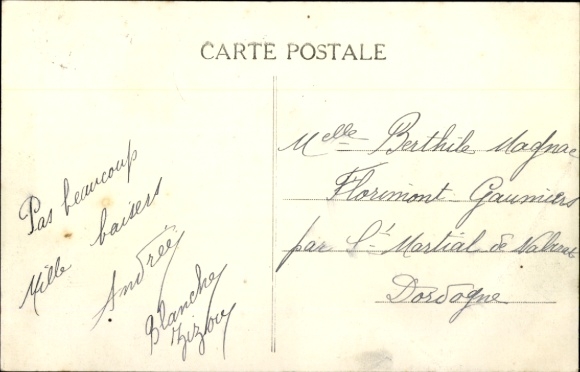 CARTE POSTALE
Pas beaucoup
Mille baisers
Andrée
Blanche
Zizou
Melle Berthile Magnac
Florimont Gaumiers
par St Martial de Nabirat
Dordogne